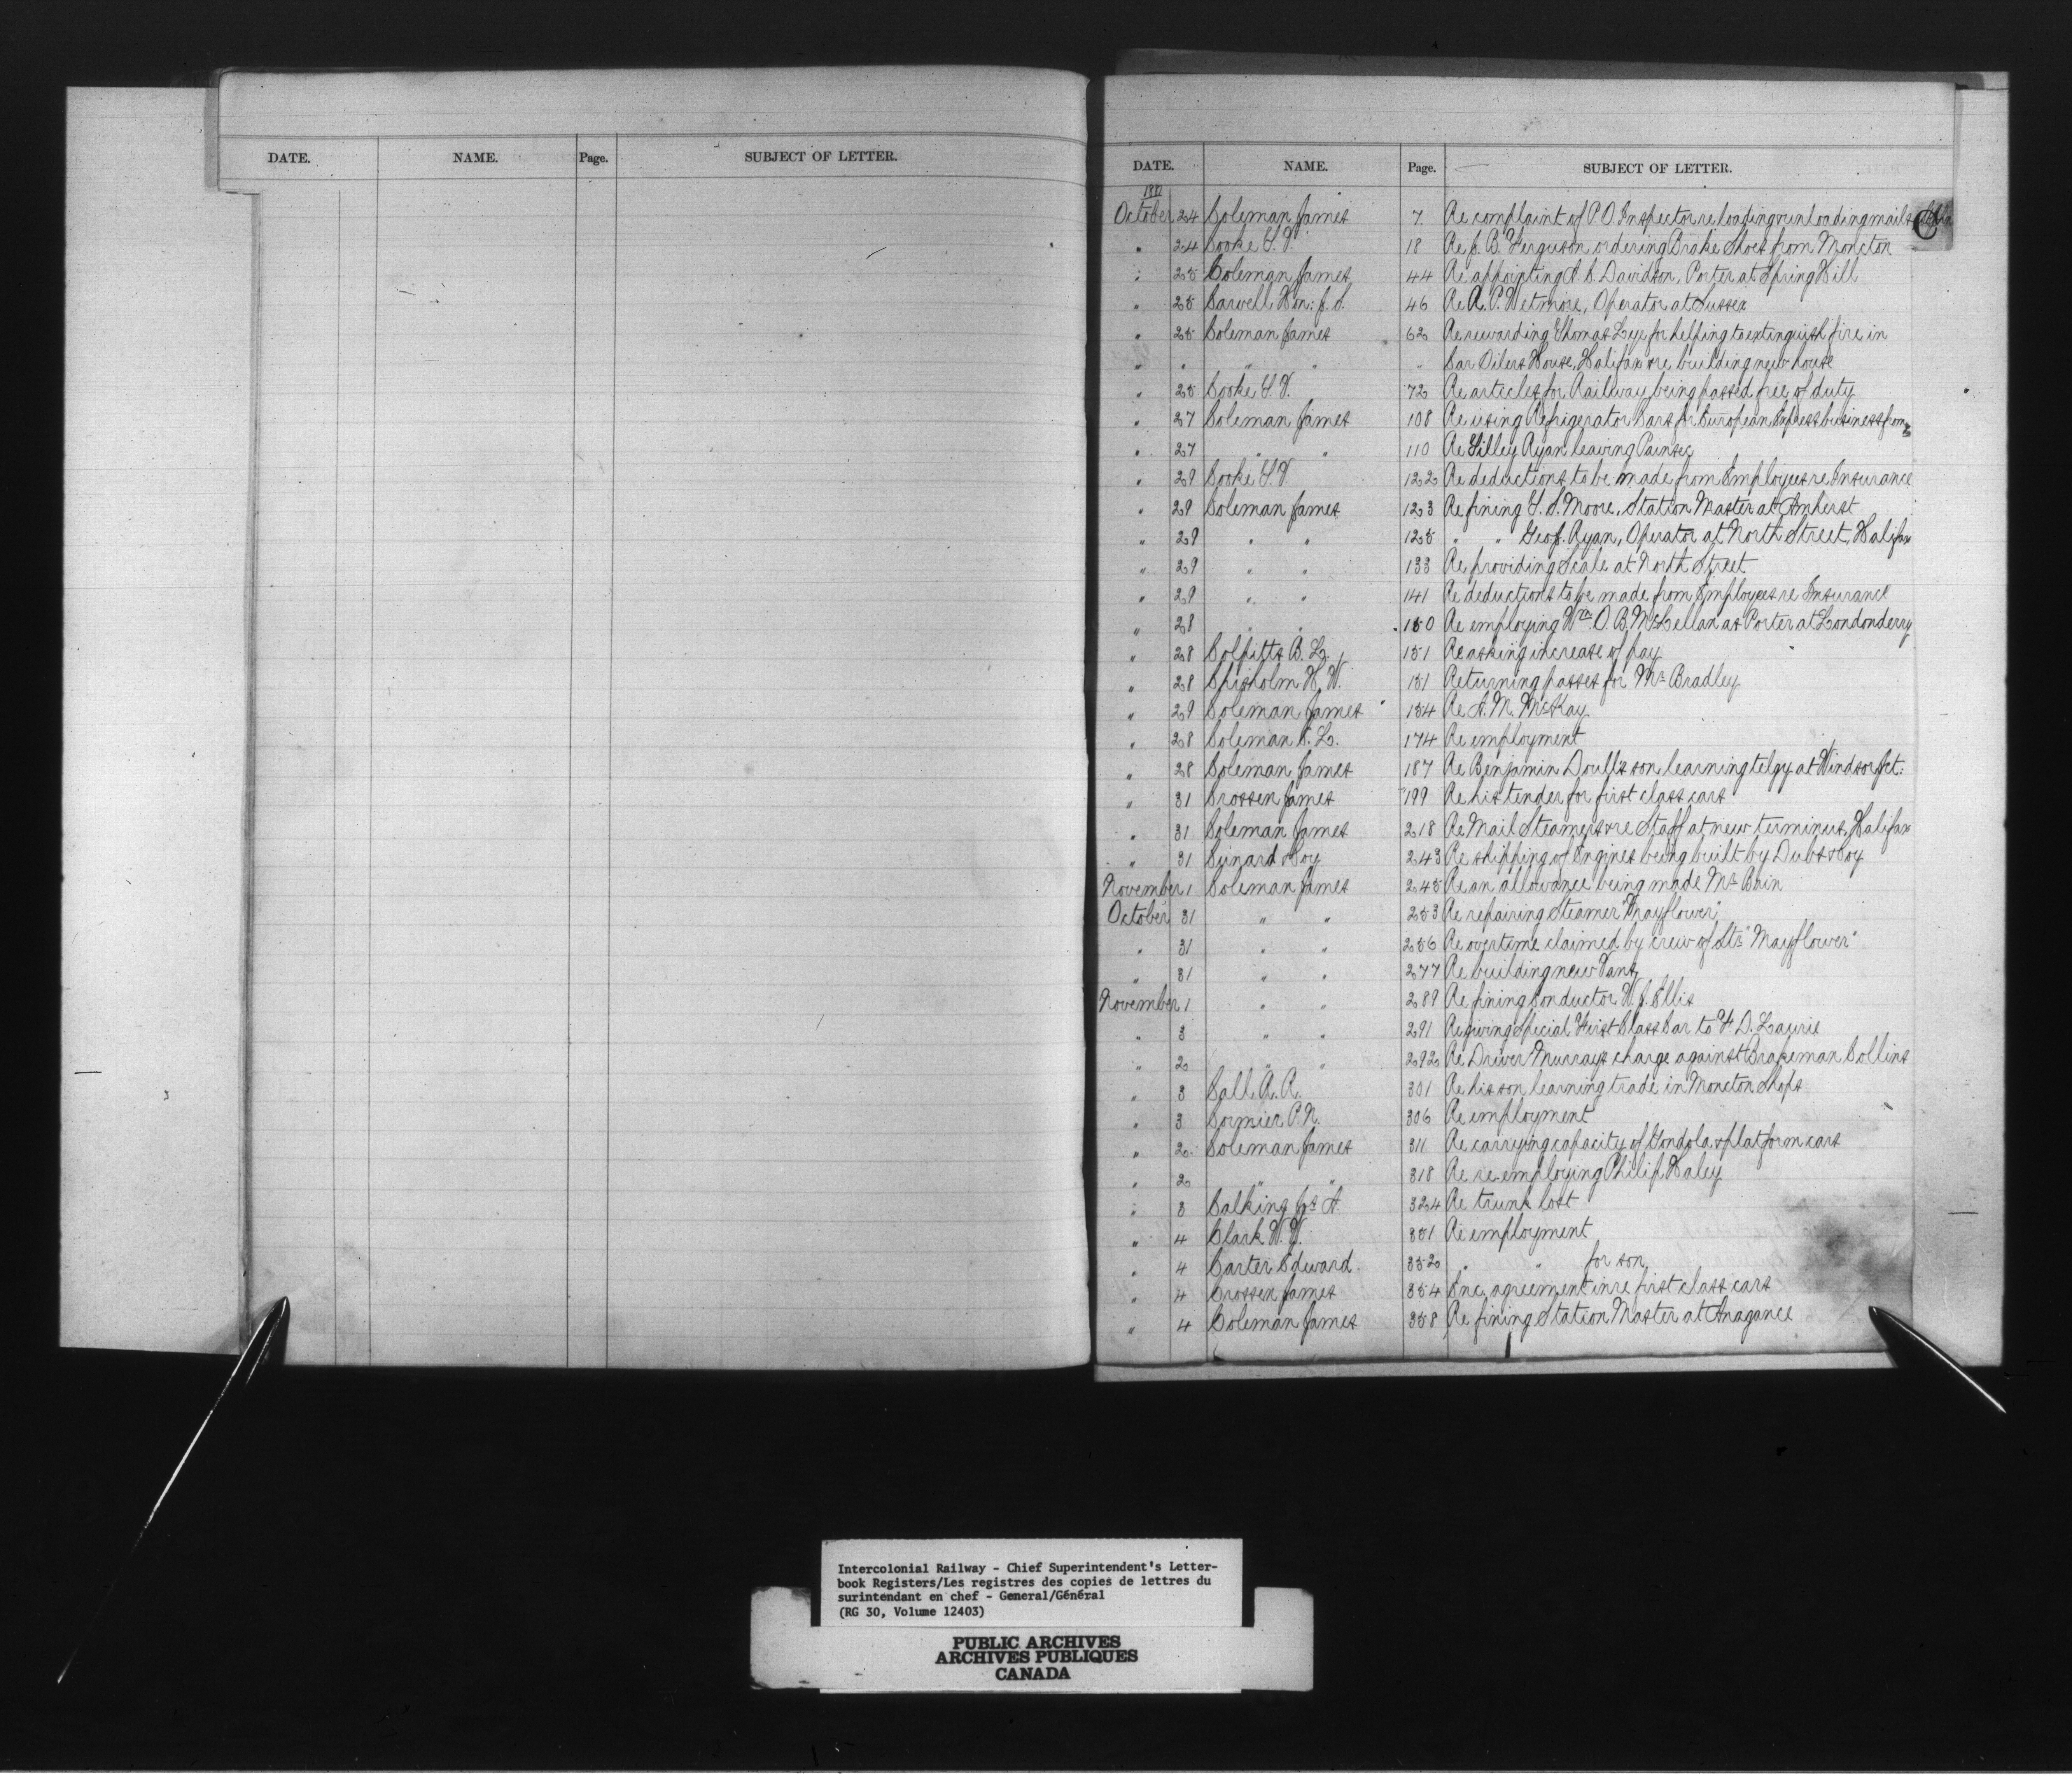 DATE. NAME. Page. SUBJECT OF LETTER.
DATE. NAME. Page. SUBJECT OF LETTER.
October 24 Coleman James 7 Re complaint of P.O. Inspector re loading & unloading mails
C
" 24 Cooke 18 Re J. B. Ferguson ordering Brake Shoes from Moncton
" 25 Coleman James 44 Re appointing Davidson, Porter at Spring Hill
" 25 Carvell Hon: J. S. 46 Re A. P. Wetmore, Operator at Sussex
" 25 Coleman James 62 Re rewarding Thomas Lye for helping to extinguish fire in
" " " " " Car Oilers House, Halifax & re building new house
" 25 Cooke 72 Re articles for Railway being passed free of duty
" 27 Coleman James 108 Re using Refrigerator Cars for European Express business from
" 27 " " 110 Re Ryan leaving Painsec
" 29 Cooke 122 Re deductions to be made from Employees re Insurance
" 29 Coleman James 123 Re fining Moore, Station Master at Amherst
" 29 " " 125 " " Geo. J. Ryan, Operator at North Street, Halifax
" 29 " " 133 Re providing Scale at North Street
" 29 " " 141 Re deductions to be made from Employees re Insurance
" 28 " " 150 Re employing Wm. O. B. McLellan as Porter at Londonderry
" 28 Colpitts B. L. 151 Re asking increase of pay
" 28 Chisholm H. W. 151 Returning passes for Mr Bradley
" 29 Coleman James 154 Re A. M. McKay
" 28 Coleman C. L. 174 Re employment
" 28 Coleman James 187 Re Benjamin Doull's son learning telgy at Windsor Jct:
" 31 Crossen James 199 Re his tender for first class cars
" 31 Coleman James 218 Re Mail Steamers & re Staff at new terminus, Halifax
" 31 Cunard & Coy 243 Re shipping of Engines being built by Dubs & Coy
November 1 Coleman James 245 Re an allowance being made Mr Bain
October 31 " " 253 Re repairing Steamer "Mayflower"
" 31 " " 256 Re overtime claimed by crew of Str "Mayflower"
" 31 " " 277 Re building new Vans
November 1 " " 289 Re fining Conductor W. J. Ellis
" 3 " " 291 Re giving Special First Class Car to F. D. Laurie
" 2 " " 292 Re Driver Murrays charge against Brakeman Collins
" 3 Call R. R. 301 Re his son learning trade in Moncton Shops
" 3 Cormier P. N. 306 Re employment
" 2 Coleman James 311 Re carrying capacity of Gondola & platform cars
" 2 " " 318 Re re-employing Philip Haley
" 3 Calking A. 324 Re trunk lost
" 4 Clark W. 351 Re employment
" 4 Carter Edward. 352 " " for son
" 4 Crossen James 354 Enc. agreement in re first class cars
" 4 Coleman James 358 Re fining Station Master at Anagance
Intercolonial Railway - Chief Superintendent's Letter-
book Registers/Les registres des copies de lettres du
surintendant en chef - General/Général
(RG 30, Volume 12403)
PUBLIC ARCHIVES
ARCHIVES PUBLIQUES
CANADA